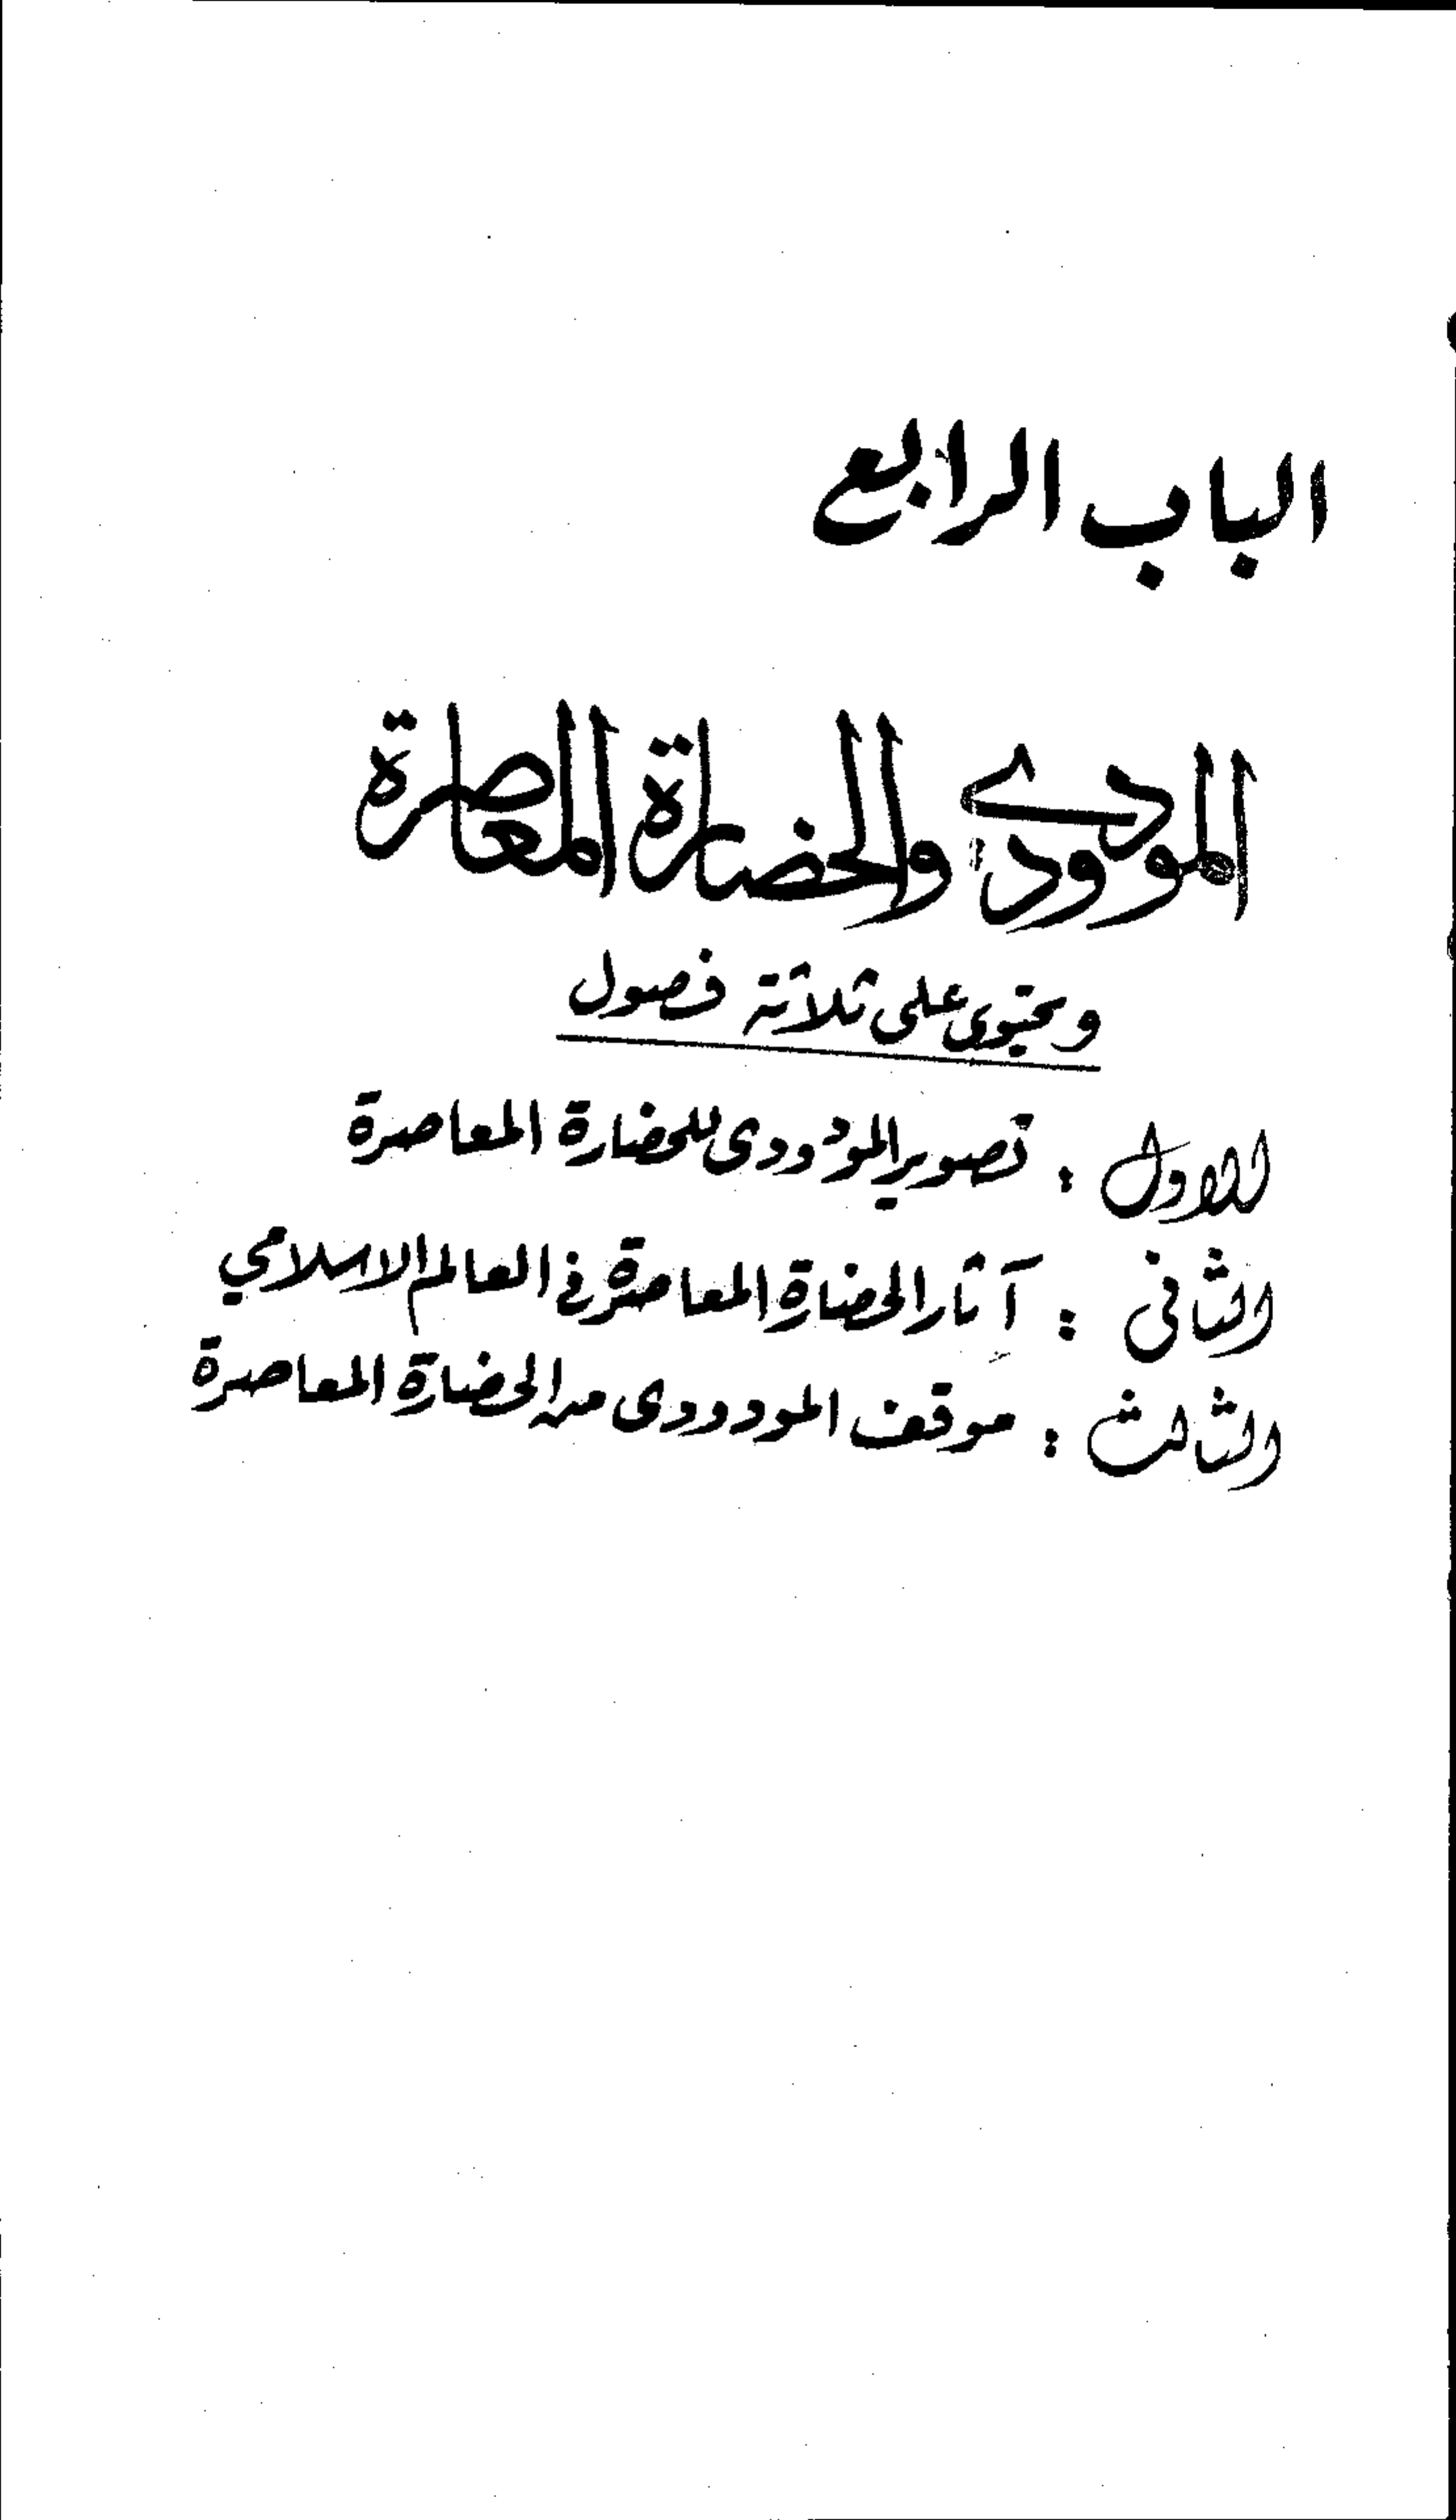 الباب الرابع
المودودى والحضارة المعاصرة
ويحتوى على ثلاثة فصول
الاول : تصوير المودودى للحضارة المعاصرة
الثانى : آثار الحضارة المعاصرة فى العالم الاسلامي
الثالث : موقف المودودى من الحضارة المعاصرة